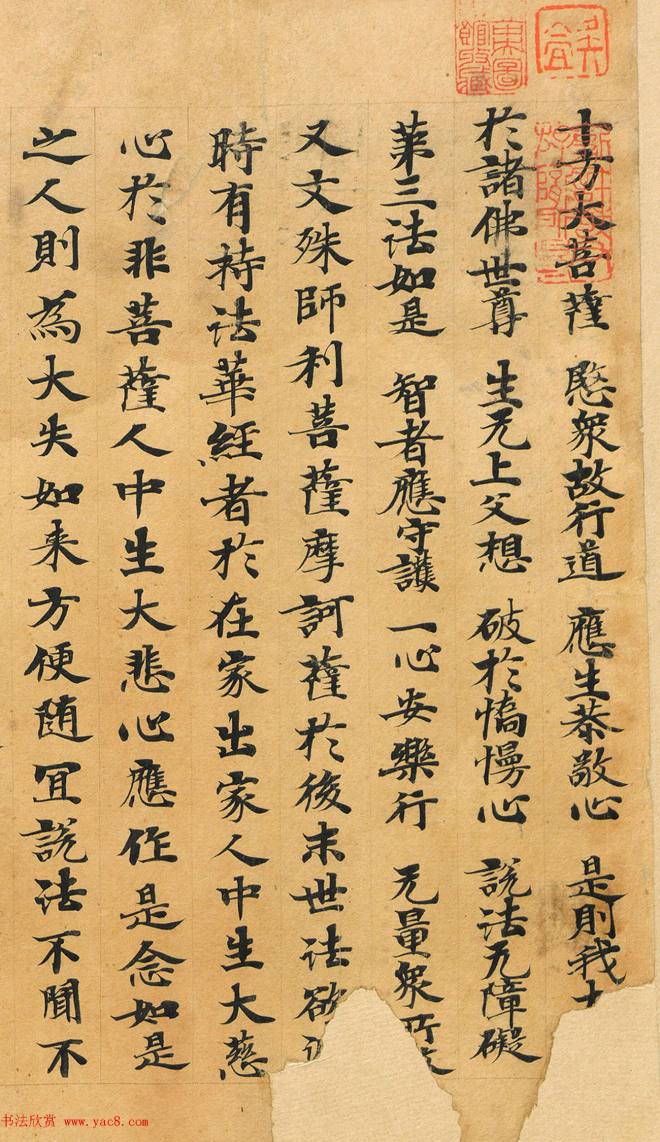 十方大菩薩 愍衆故行道 應生恭敬心 是則我大
於諸佛世尊 生无上父想 破於憍慢心 說法无障礙
第三法如是 智者應守護 一心安樂行 无量衆所
又文殊師利菩薩摩訶薩於後末世法欲
時有持法華經者於在家出家人中生大慈
心於非菩薩人中生大悲心應作是念如是
之人則為大失如来方便随冝說法不聞不
书法欣赏 www.yac8.com